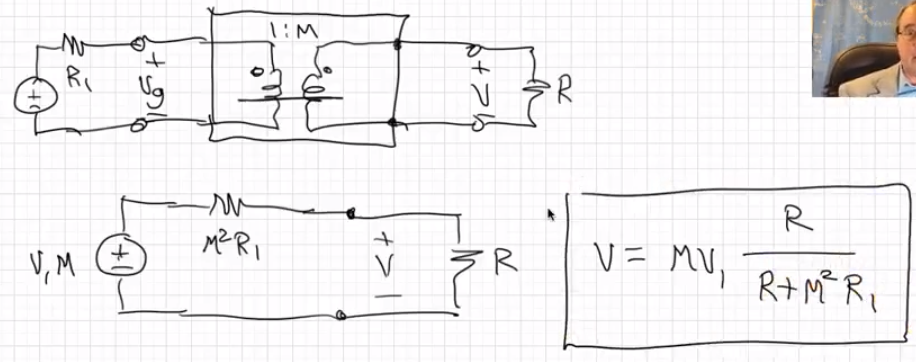 1:M
R₁
+
Vg
−
+
V
−
R
V₁M
M²R₁
+
V
−
R
V = MV₁ R / (R + M²R₁)